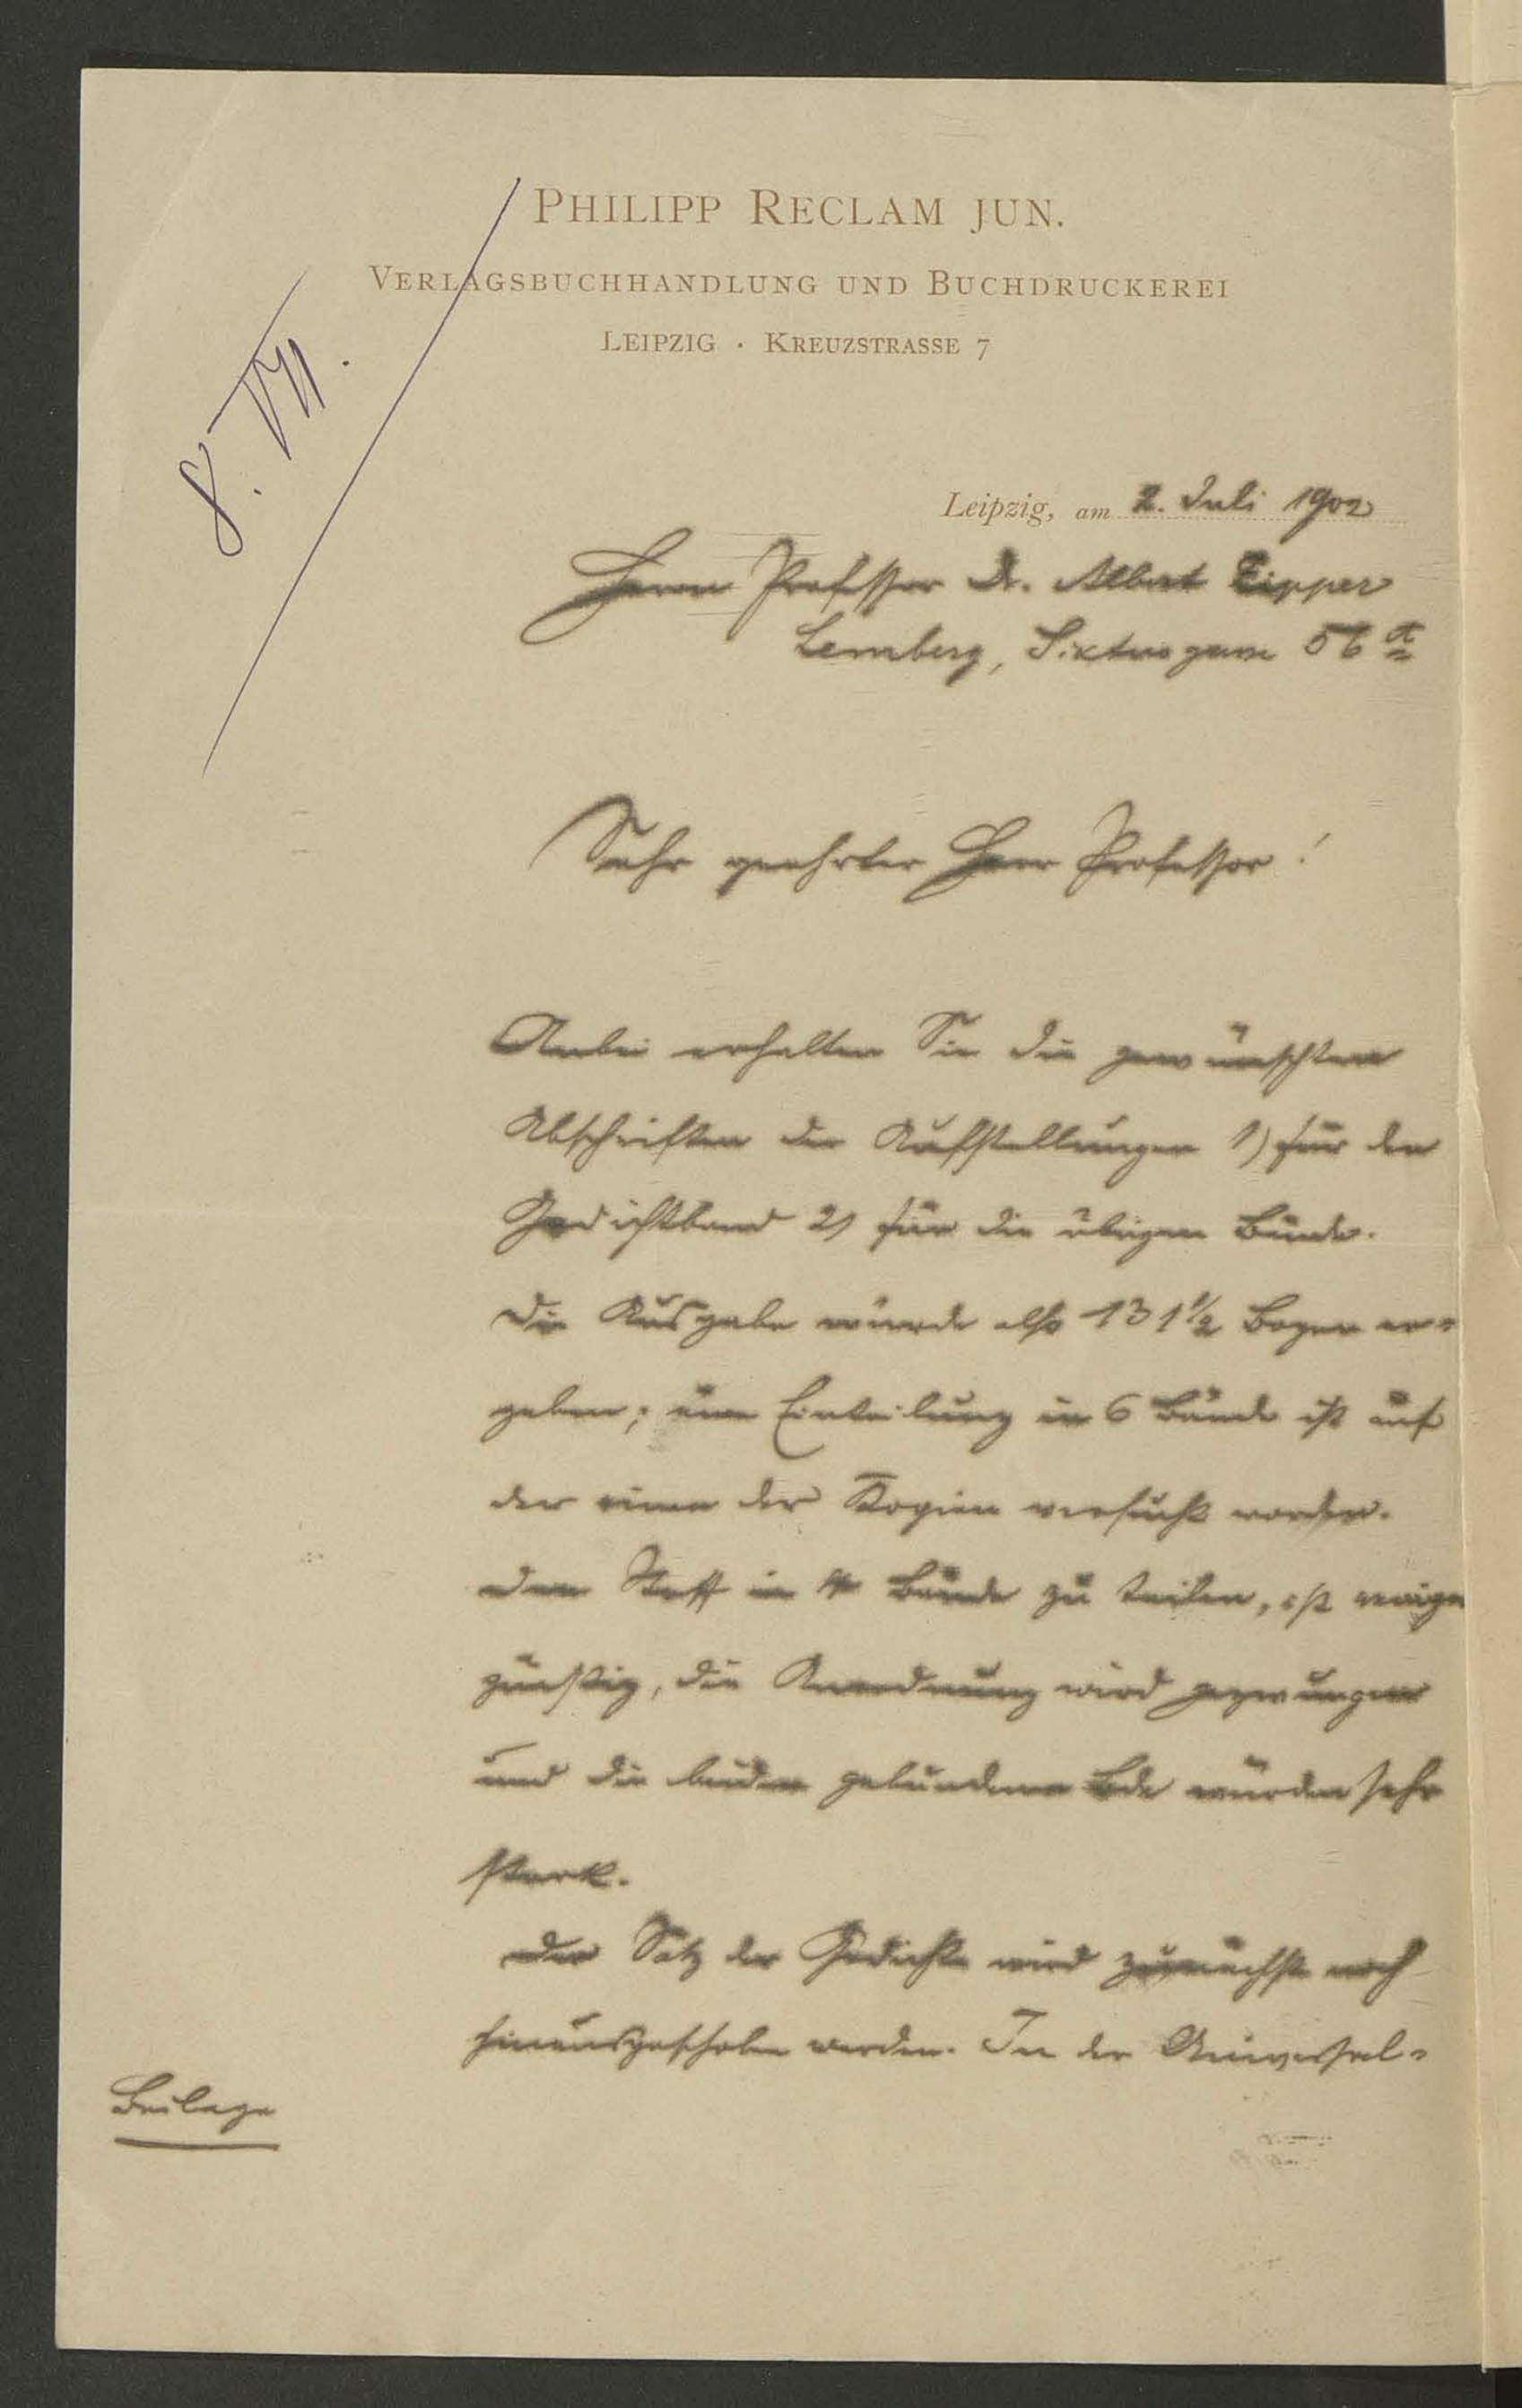 PHILIPP RECLAM JUN.
VERLAGSBUCHHANDLUNG UND BUCHDRUCKEREI
LEIPZIG · KREUZSTRASSE 7
8. VII.
Leipzig, am 2. Juli 1902
Herrn Professor Dr. Albert Zipper
Lemberg, Sixtusgasse 56
Sehr geehrter Herr Professor!
Anbei erhalten Sie die gewünschten
Abschriften der Aufstellungen 1) für den
Gedichtband 2) für die übrigen Bände.
Die Ausgabe würde also 131½ Bogen er=
geben; eine Einteilung in 6 Bände ist auf
der einen der Kopien versucht worden.
Den Stoff in 4 Bände zu teilen, ist weniger
günstig, die Anordnung wird gezwungen
und die beiden gebundenen Bde würden sehr
stark.
Der Satz der Gedichte wird zunächst noch
hinausgeschoben werden. In der Universal=
Beilage